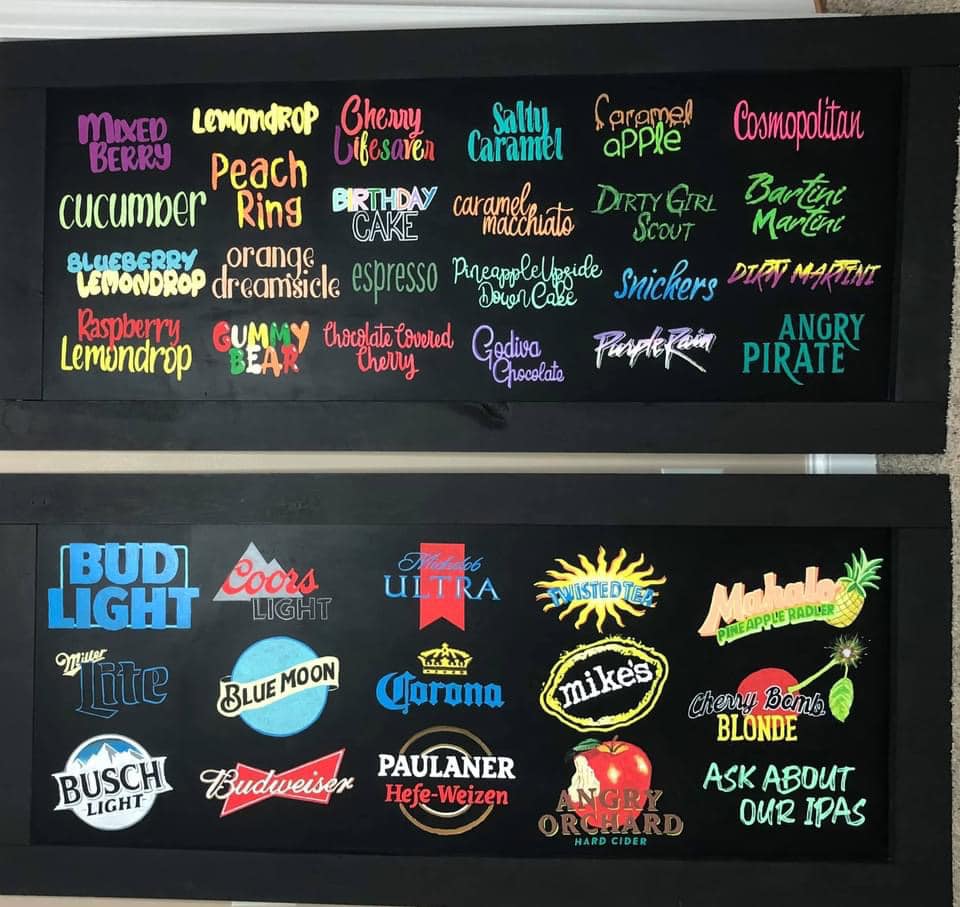 Mixed
Berry
Lemondrop
Cherry
Lifesaver
Salty
Caramel
Caramel
apple
Cosmopolitan
cucumber
Peach
Ring
BIRTHDAY
CAKE
caramel
macchiato
Dirty Girl
Scout
Bartini
Martini
BLUEBERRY
LEMONDROP
orange
dreamsicle
espresso
Pineapple Upside
Down Cake
Snickers
DIRTY MARTINI
Raspberry
Lemondrop
GUMMY
BEAR
Chocolate Covered
Cherry
Godiva
Chocolate
Purple Rain
ANGRY
PIRATE
BUD
LIGHT
Coors
LIGHT
Michelob
ULTRA
TWISTED TEA
Mahalo
PINEAPPLE RADLER
Miller
Lite
BLUE MOON
Corona
mike's
Cherry Bomb
BLONDE
BUSCH
LIGHT
Budweiser
PAULANER
Hefe-Weizen
ANGRY
ORCHARD
HARD CIDER
ASK ABOUT
OUR IPAS